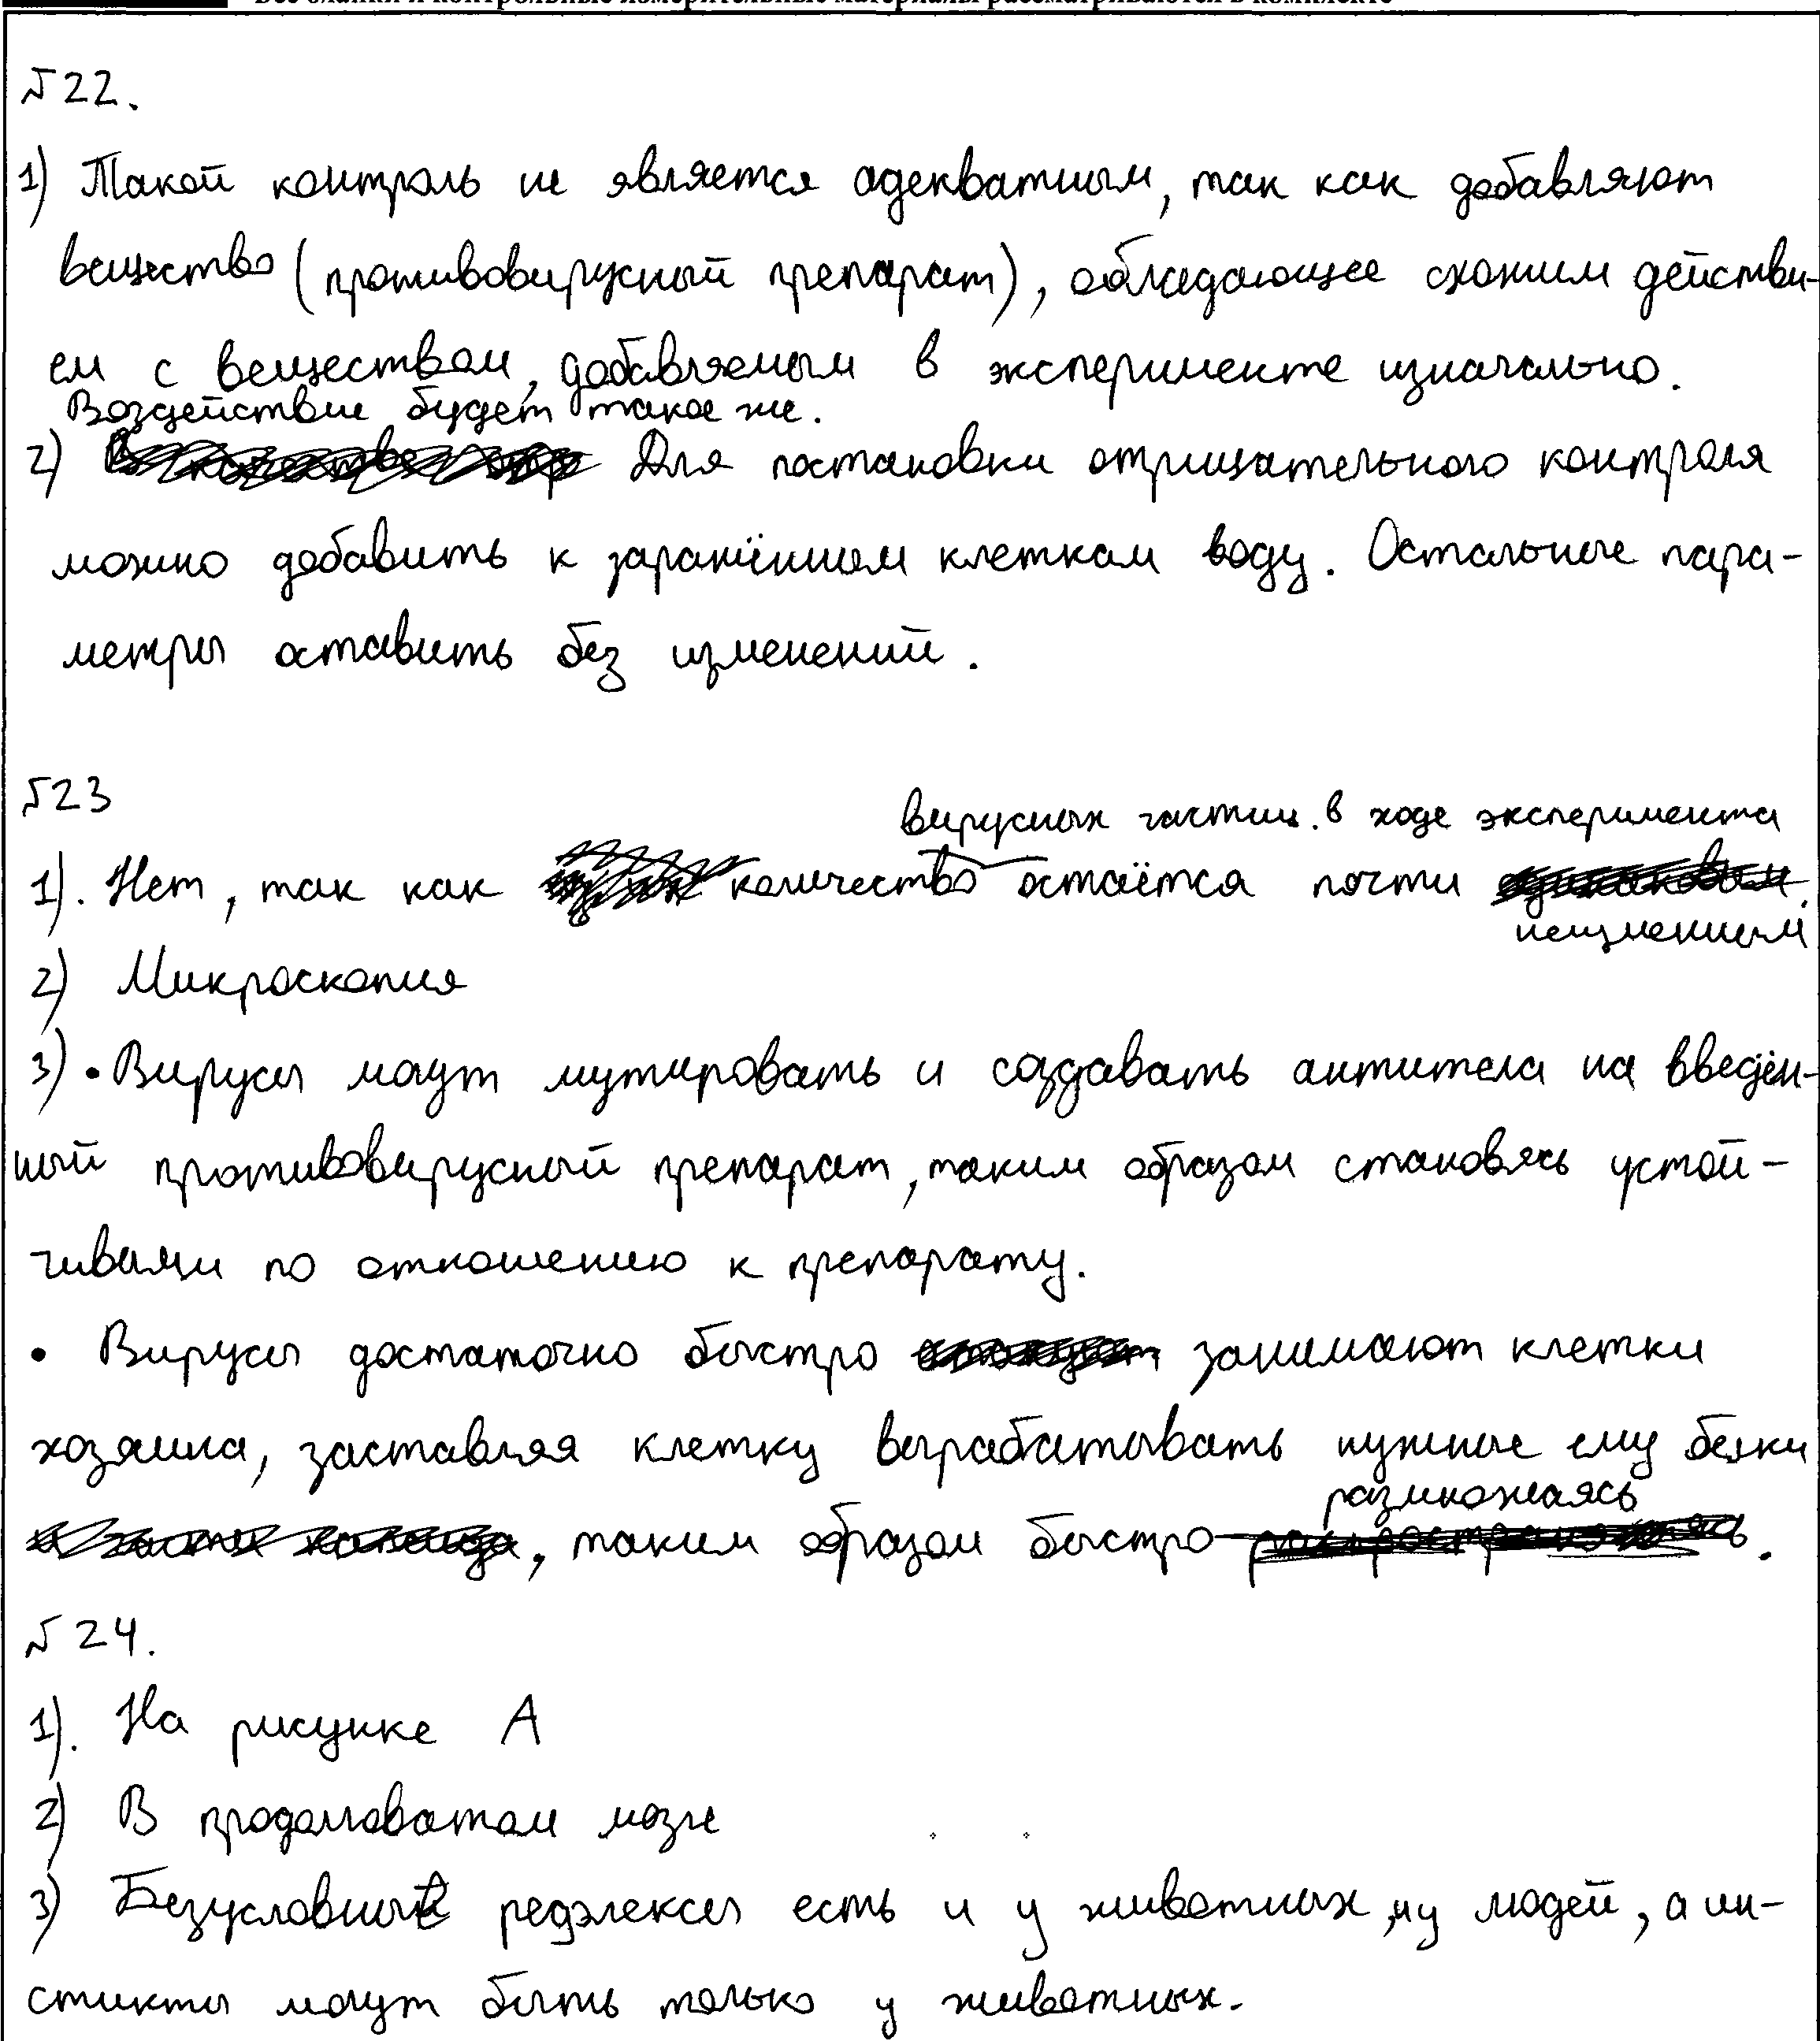 Все бланки и контрольные измерительные материалы рассматриваются в комплекте
№22.
1) Такой контроль не является адекватным, так как добавляют
вещество (противовирусный препарат), обладающее схожим действи-
ем с веществом, добавляемым в эксперименте изначально.
Воздействие будет такое же.
2) Для постановки отрицательного контроля
можно добавить к заражённым клеткам воду. Остальные пара-
метры оставить без изменений.
№23
вирусных частиц в ходе эксперимента
1). Нет, так как количество остаётся почти
неизменным
2) Микроскопия
3) • Вирусы могут мутировать и создавать антитела на введён-
ный противовирусный препарат, таким образом становясь устой-
чивыми по отношению к препарату.
• Вирусы достаточно быстро занимают клетки
хозяина, заставляя клетку вырабатывать нужные ему белки
размножаясь
, таким образом быстро .
№24.
1). На рисунке А
2) В продолговатом мозге
3) Безусловные рефлексы есть и у животных, и у людей, а ин-
стикты могут быть только у животных.